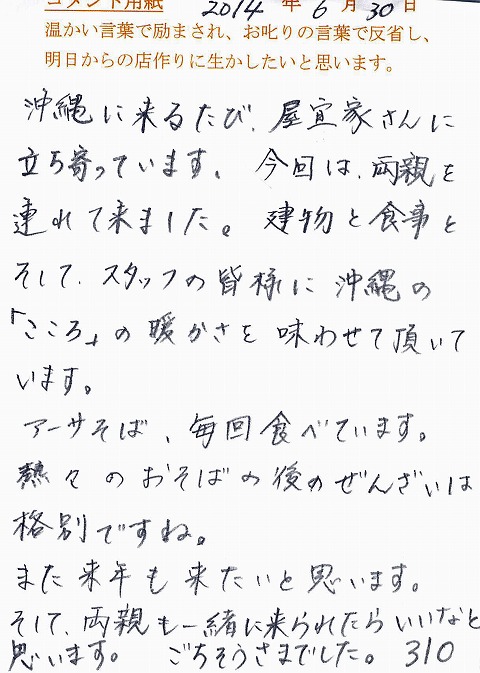 コメント用紙 2014 年 6 月 30 日
温かい言葉で励まされ、お叱りの言葉で反省し、
明日からの店作りに生かしたいと思います。
沖縄に来るたび、屋宜家さんに
立ち寄っています。 今回は、両親を
連れて来ました。 建物と食事と
そして、スタッフの皆様に沖縄の
「こころ」の暖かさを味わせて頂いて
います。
アーサそば、毎回食べています。
熱々のおそばの後のぜんざいは
格別ですね。
また来年も来たいと思います。
そして、両親も一緒に来られたらいいなと
思います。 ごちそうさまでした。 310